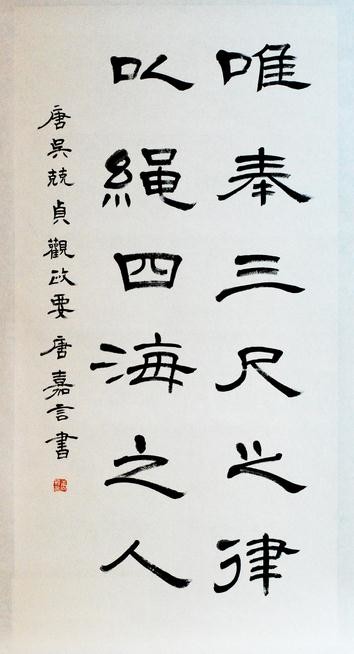 唯奉三尺之律
以繩四海之人
唐吳兢貞觀政要 唐嘉言書